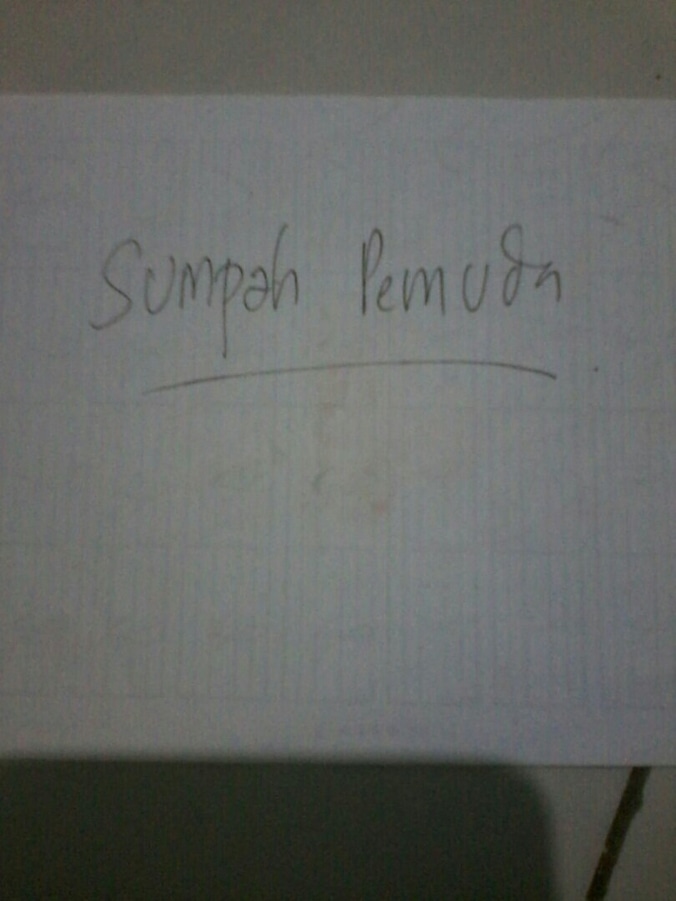 Sumpah Pemuda